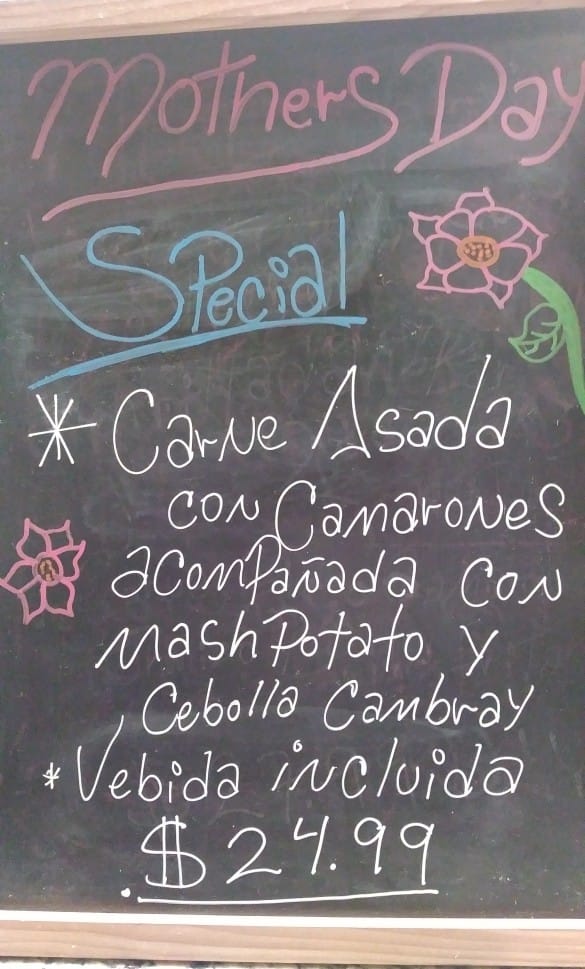 Mothers Day
Special
* Carne Asada
con Camarones
acompañada con
mash Potato y
Cebolla Cambray
* Vebida incluida
$24.99